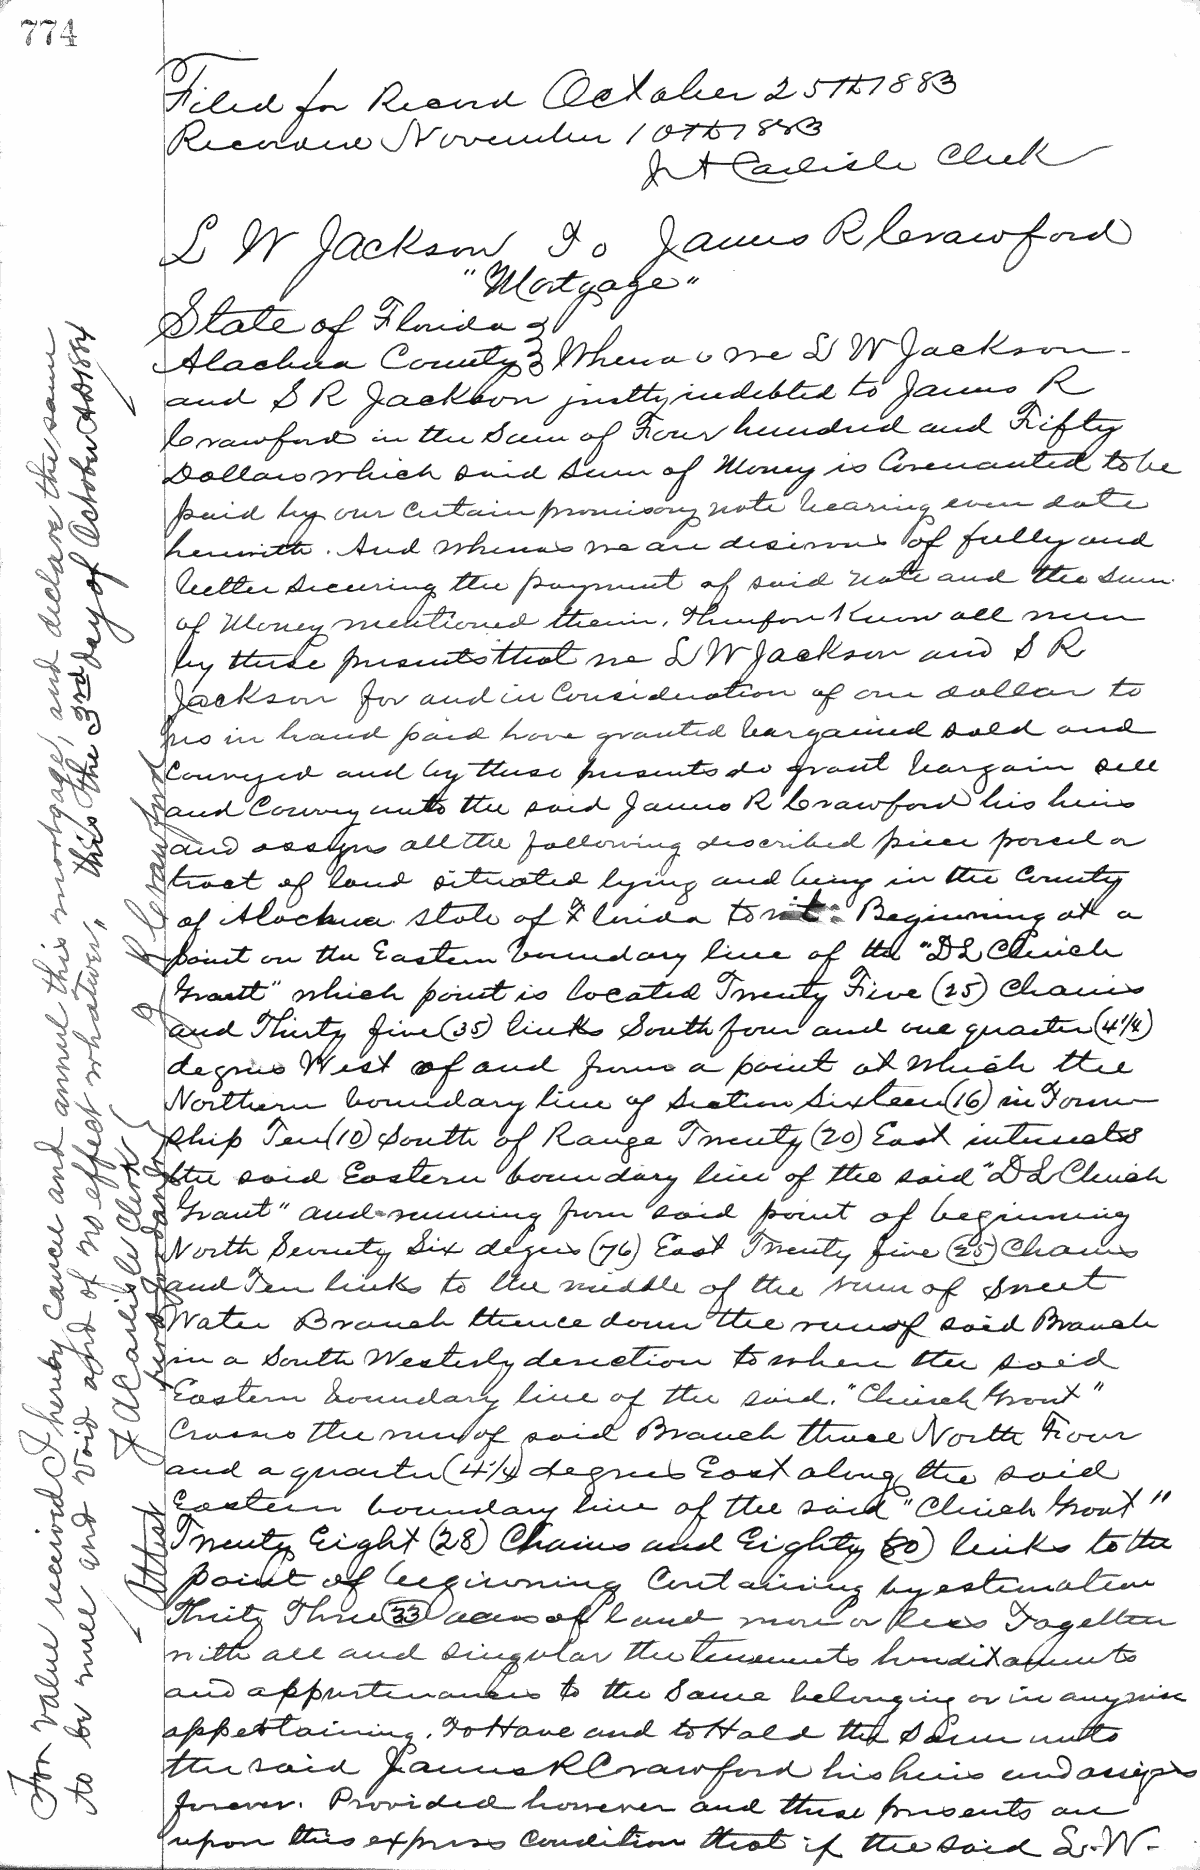 774
Filed for Record October 25th 1883
Recorded November 10th 1883
J A Carlisle Clerk
L W Jackson To James R Crawford
"Mortgage"
State of Florida }
Alachua County } Whereas we L W Jackson
and S R Jackson justly indebted to James R
Crawford in the Sum of Four hundred and Fifty
Dollars which said sum of Money is Covenanted to be
paid by our certain promisory note bearing even date
herewith. And whereas we are desirous of fully and
better securing the payment of said note and the sum
of Money mentioned therein. Therefore Know all men
by these presents that we L W Jackson and S R
Jackson for and in Consideration of one dollar to
us in hand paid have granted bargained sold and
Conveyed and by these presents do grant bargain sell
and Convey unto the said James R Crawford his heirs
and assigns all the following described piece parcel or
tract of land situated lying and being in the County
of Alachua state of Florida to wit: Beginning at a
point on the Eastern boundary line of the "D L Clinch
Grant" which point is located Twenty Five (25) Chains
and Thirty five (35) links South four and one quarter (4 1/4)
degrees West of and from a point at which the
Northern boundary line of Section Sixteen (16) in Town
ship Ten (10) South of Range Twenty (20) East intersects
the said Eastern boundary line of the said "D L Clinch
Grant" and running from said point of beginning
North Seventy Six degrees (76) East Twenty five (25) Chains
and Ten links to the middle of the run of Sweet
Water Branch thence down the run of said Branch
in a South Westerly direction to where the said
Eastern boundary line of the said "Clinch Grant"
Crosses the run of said Branch thence North Four
and a quarter (4 1/4) degrees East along the said
Eastern boundary line of the said "Clinch Grant"
Twenty Eight (28) Chains and Eighty (80) links to the
point of beginning Containing by estimation
Thirty Three (33) acres of land more or less Together
with all and singular the tenements hereditaments
and appurtenances to the Same belonging or in anywise
appertaining. To Have and to Hold the Same unto
the said James R Crawford his heirs and assigns
forever. Provided however and these presents are
upon this express Condition that if the said L. W.
For value received I hereby cancel and annul this mortgage, and declare the same
to be null and void and of no effect whatever, this the 3rd day of October AD 1884
Attest J A Carlisle Clerk } J R Crawford